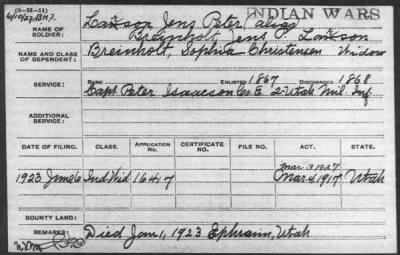 (3-III-11)
6/10/27 B.H.J.
INDIAN WARS
NAME OF SOLDIER: Lawson Jens Peter (alias
Breinholt, Jens P. Lawson
NAME AND CLASS OF DEPENDENT: Breinholt, Sophia Christensen Widow
SERVICE: NAME ENLISTED 1867 DISCHARGED 1868
Capt. Peter Isaacson Co. E. 2-Utah Mil. Inf.
ADDITIONAL SERVICE:
DATE OF FILING. CLASS. APPLICATION No. CERTIFICATE NO. FILE NO. ACT. STATE.
Mar 3 1927
1923 June 6 Ind. Wid 16417 Mar 4, 1917 Utah
BOUNTY LAND:
REMARKS: Died Jan 1, 1923 Ephraim, Utah